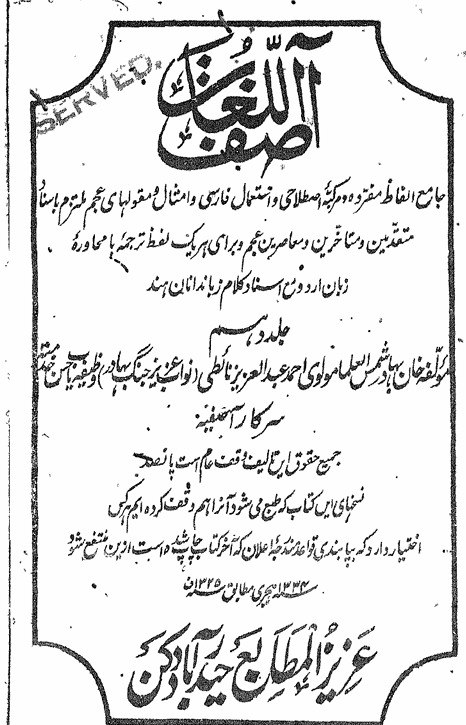 آصف اللغات
SERVED.
جامع الفاظ مفرده و مرکبهٔ اصطلاحی و استعمال فارسی و امثال و مقولهای عجم ملتزم باسناد
متقدمین و متأخرین و معاصرین عجم و برای هر یک لفظ ترجمهٔ با محاورهٔ
زبان اردو مع اسناد کلام زباندانان هند
جلد دهم
مؤلفه خان بهادر شمس العلما مولوی احمد عبد العزیز نائطی (نواب عزیز جنگ بهادر) وظیفه یاب حسن خدمت
سرکار آصفیه
جمیع حقوق این تالیف وقف عام است پانصد
نسخهای این کتاب که طبع می شود آنرا هم وقف کرده ایم هر کس
اختیار دارد که بپابندی قواعد مندرجهٔ اعلان که آخر کتاب چاپ شده است ازین منتفع شود
سنه ۱۳۳۴ هجری مطابق سنه ۱۳۲۵ ف
عزیز المطابع حیدرآباد دکن